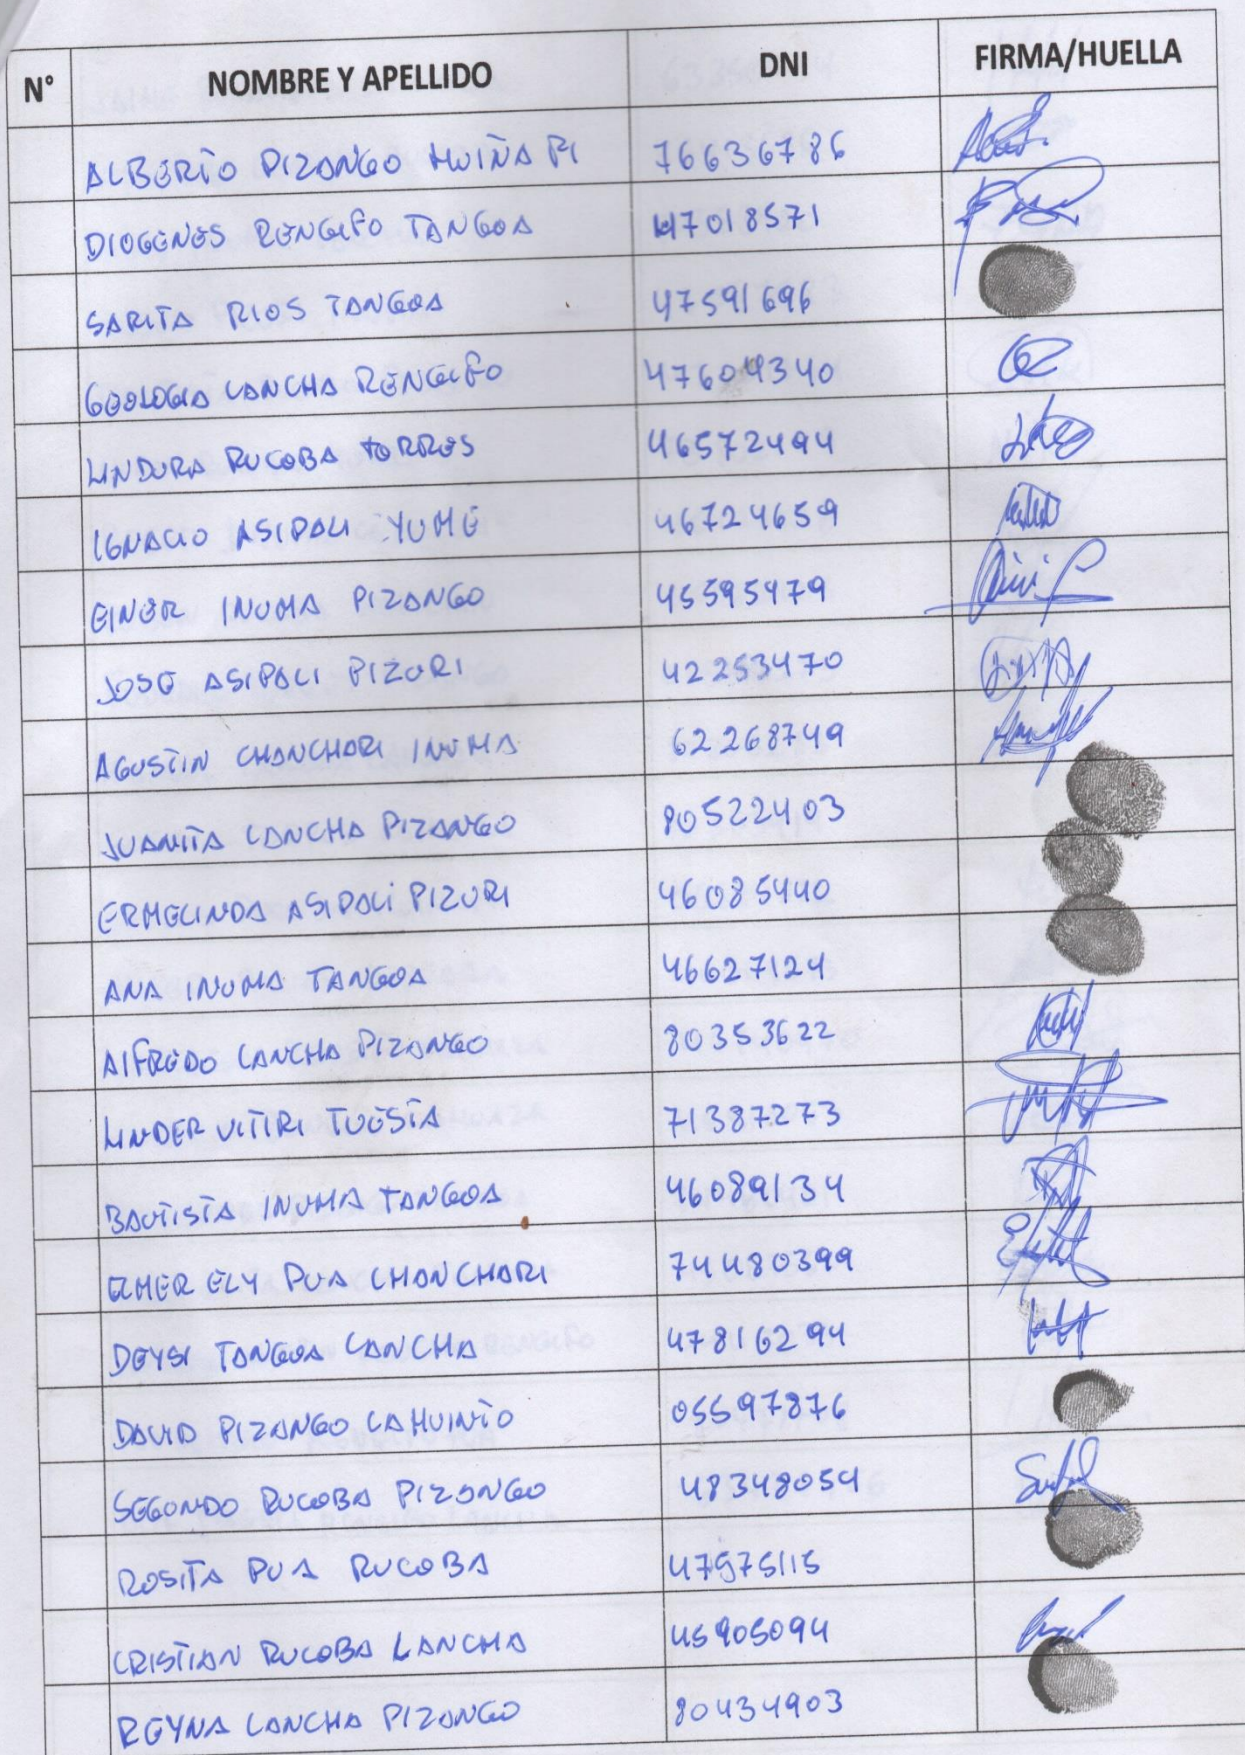 N° NOMBRE Y APELLIDO DNI FIRMA/HUELLA
ALBERTO PIZANGO HUIÑAPI 76636786
DIOGENES RENGIFO TANGOA 47018571
SARITA RIOS TANGOA 47591696
GEOLOGIA LANCHA RENGIFO 47604340
LINDURA RUCOBA TORRES 46572494
IGNACIO ASIPALI YUME 46724659
EINER INUMA PIZANGO 45595479
JOSE ASIPALI PIZURI 42253470
AGUSTIN CHANCHARI INUMA 62268749
JUANITA LANCHA PIZANGO 80522403
ERMELINDA ASIPALI PIZURI 46085440
ANA INUMA TANGOA 46627124
AlFREDO LANCHA PIZANGO 80353622
LINDER VITIRI TUESTA 71387273
BAUTISTA INUMA TANGOA 46089134
ERMER ELY PUA CHANCHARI 74480399
DEYSI TANGOA LANCHA 47816294
DAVID PIZANGO CAHUINTO 05597876
SEGONDO RUCOBA PIZANGO 48348054
ROSITA PUA RUCOBA 47975115
CRISTIAN RUCOBA LANCHA 45905094
REYNA LANCHA PIZANGO 80434903